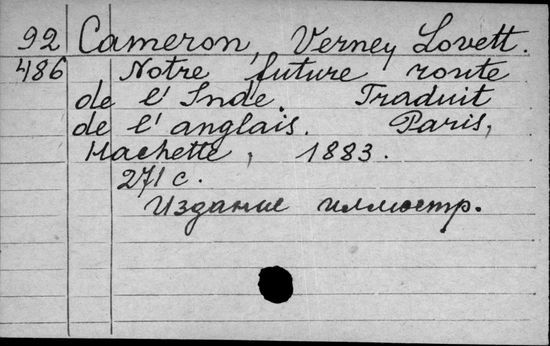 92 Cameron, Verney Lovett.
486 Notre future route
de l'Inde. Traduit
de l'anglais. Paris,
Hachette, 1883.
271 с.
Издание иллюстр.